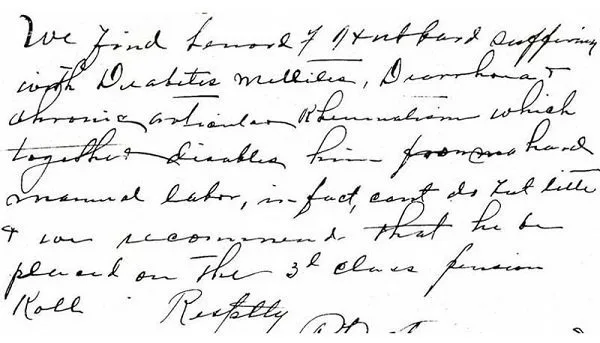 We find Lenard J Hubbard suffering
with Diabetes Mellites, Diarrhoea &
chronic articular Rheumatism which
together disables him from hard
manual labor, in fact, cant do but little
& we recommend that he be
placed on the 3d class pension
Roll Resptly